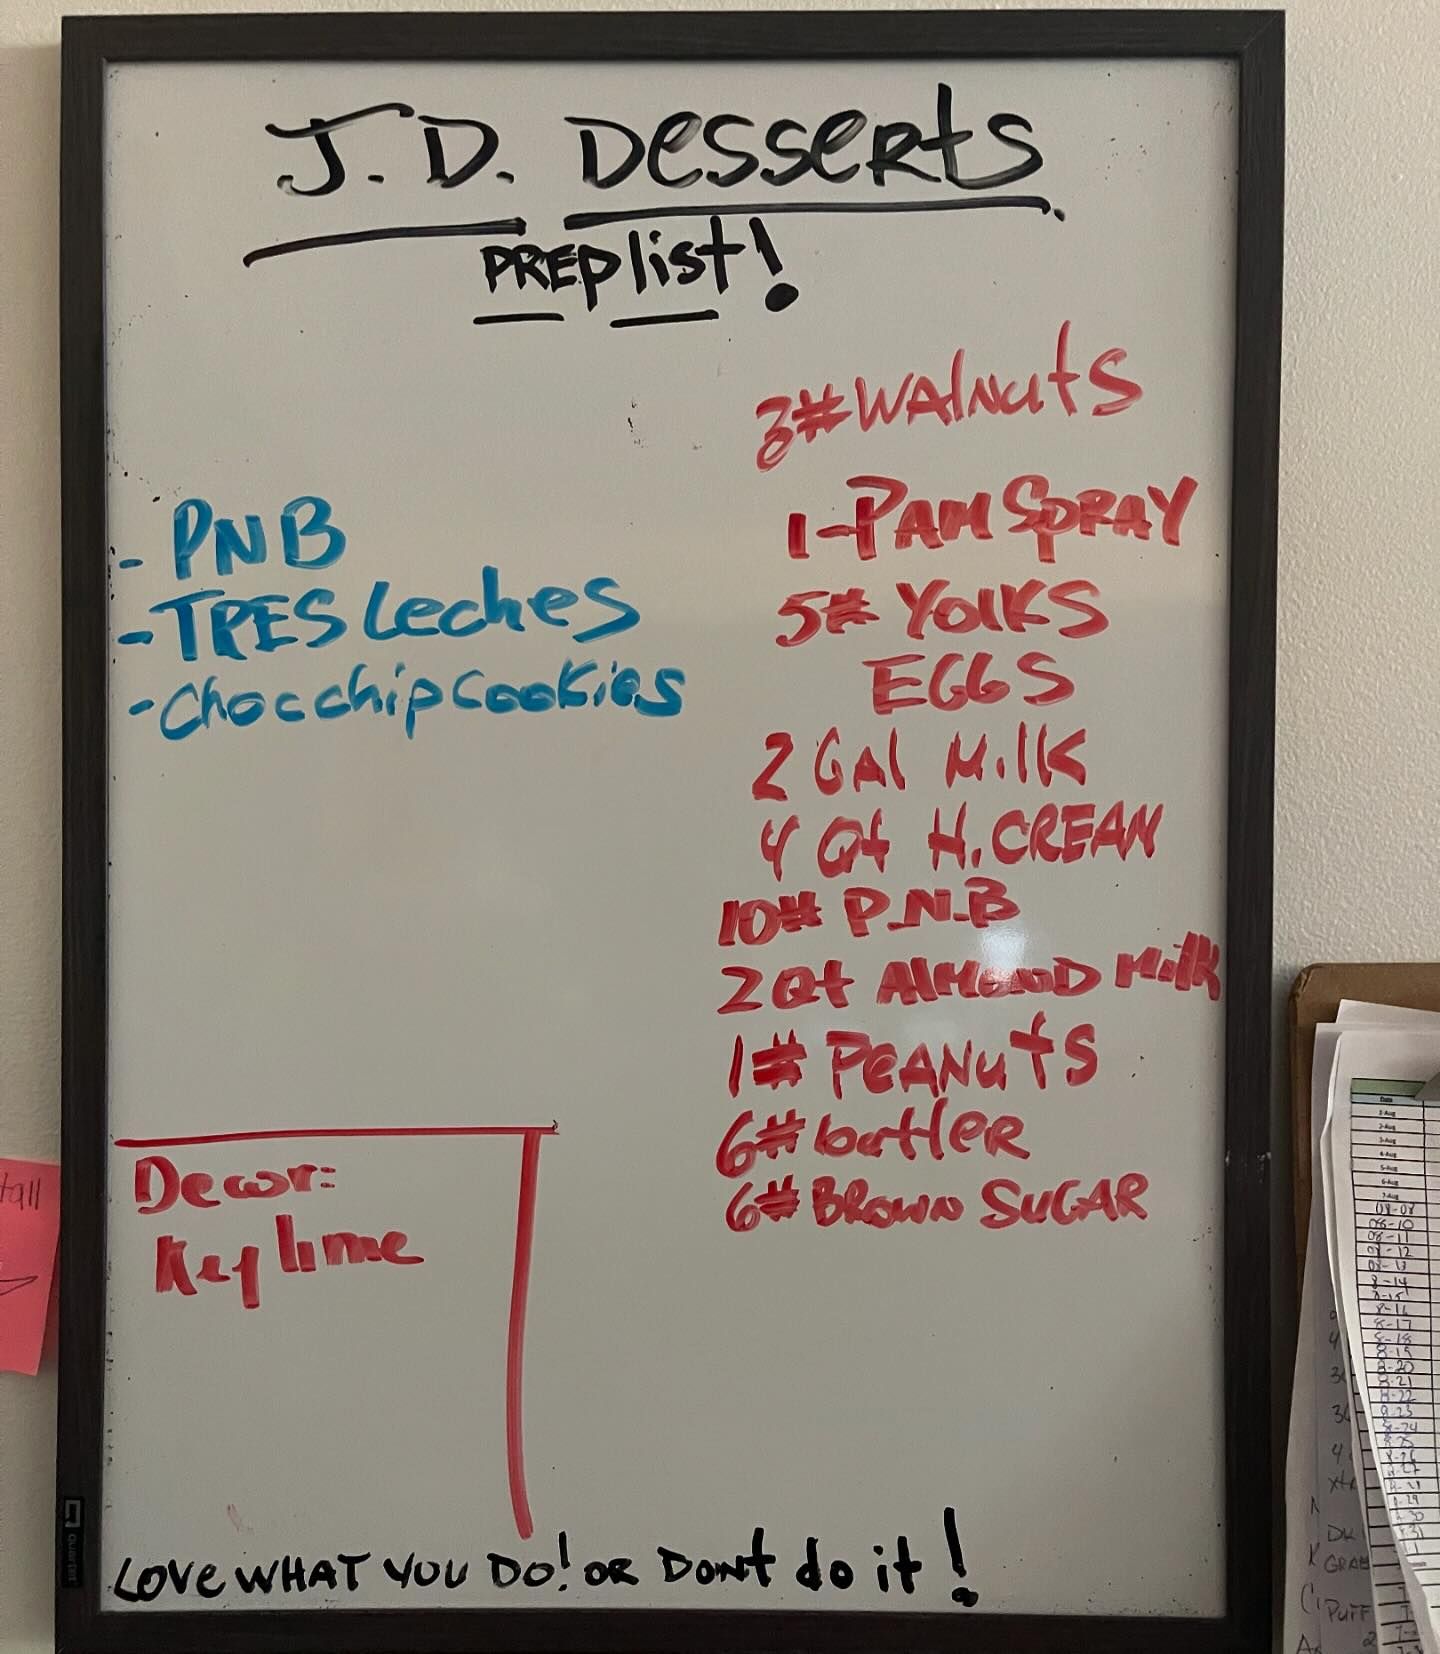 J.D. Desserts
PREP list!
- PNB
- TRES Leches
- Choc chip cookies
3# WALNUTS
1-PAM SPRAY
5# YOLKS
EGGS
2 GAL MILK
4 Qt H. CREAM
10# P.N.B
2 Qt ALMOND MILK
1# PEANUTS
6# butter
6# BROWN SUGAR
Decor:
Key lime
LOVE WHAT YOU DO! OR DONT do it!
quartet
tall
Date
1-Aug
2-Aug
3-Aug
4-Aug
5-Aug
6-Aug
7-Aug
08-08
08-10
08-11
08-12
08-13
8-14
8-15
8-16
8-17
8-18
8-19
8-20
8-21
8-22
8-24
PUFF